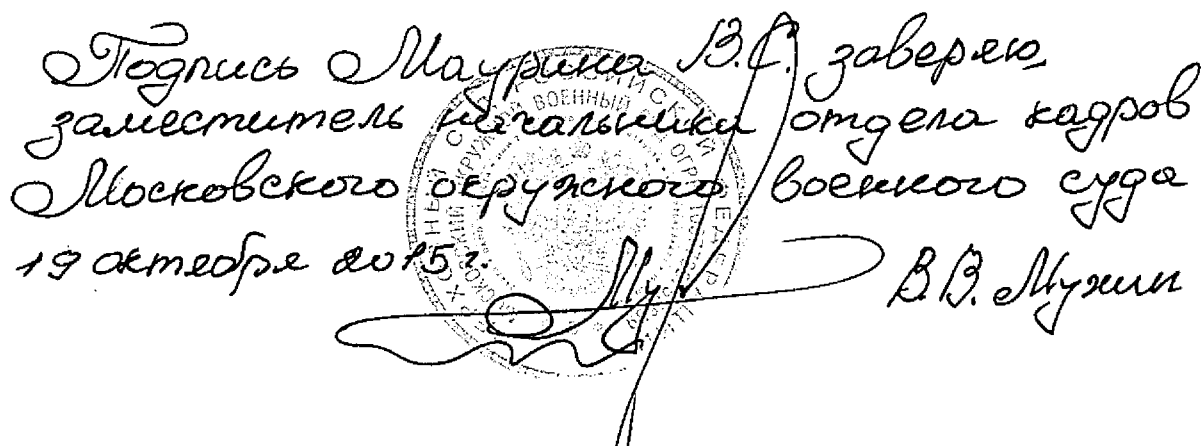 Подпись Маурина В.С. заверяю,
заместитель начальника отдела кадров
Московского окружного военного суда
19 октября 2015 г.
В.В. Мухин